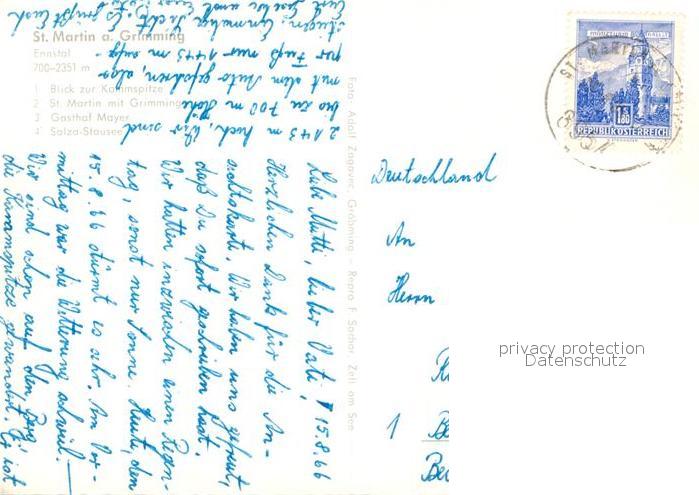 St. Martin a. Grimming
Ennstal
700-2351 m
1 Blick zur Kammspitze
2 St. Martin mit Grimming
3 Gasthof Mayer
4 Salza-Stausee
Foto Adolf Zagovec, Gröbming - Repro F. Sochor Zell am See
15.8.66
Liebe Mutti, lieber Vati,
Herzlichen Dank für die An-
sichtskarte. Wir haben uns gefreut,
daß Du sofort geschrieben hast.
Wir hatten inzwischen einen Regen-
tag, sonst nur Sonne. Heute, den
15.8.66 stürmt es sehr. Am Vor-
mittag war die Witterung schwül.
Wir sind schon auf den Berg,
die Kammspitze gewandert. Er ist
2143 m hoch. Wir sind
bis zu 700 m Höhe
mit dem Auto gefahren, also
per Fuß nur 1443 m aufge-
stiegen. Einmalige Sicht. Es grüßt Euch
Deutschland
An
Herrn
1
REPUBLIK ÖSTERREICH
1.80
ST. MARTIN
privacy protection
Datenschutz